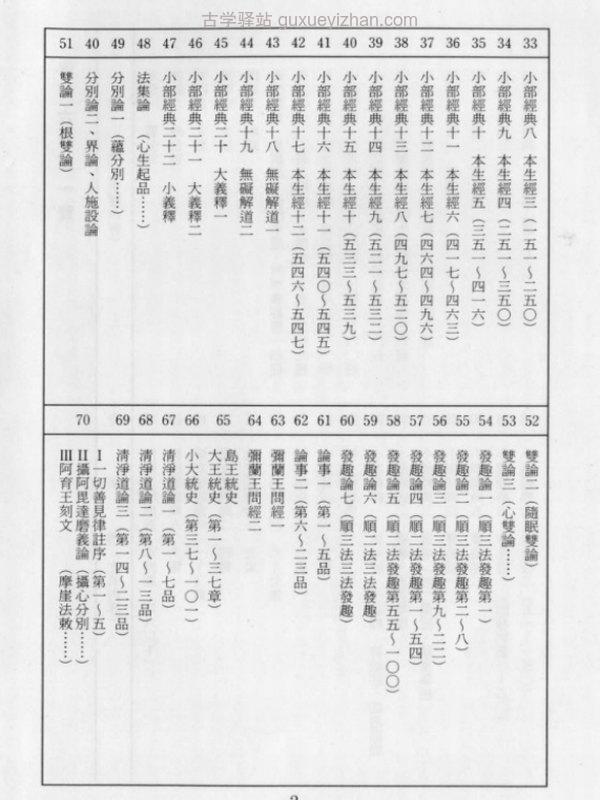 古学驿站 guxuevizhan.com
33 小部經典八 本生經三（一五一～二五〇）
34 小部經典九 本生經四（二五一～三五〇）
35 小部經典十 本生經五（三五一～四一六）
36 小部經典十一 本生經六（四一七～四六三）
37 小部經典十二 本生經七（四六四～四九六）
38 小部經典十三 本生經八（四九七～五二〇）
39 小部經典十四 本生經九（五二一～五三二）
40 小部經典十五 本生經十（五三三～五三九）
41 小部經典十六 本生經十一（五四〇～五四五）
42 小部經典十七 本生經十二（五四六～五四七）
43 小部經典十八 無礙解道一
44 小部經典十九 無礙解道二
45 小部經典二十 大義釋一
46 小部經典二十一 大義釋二
47 小部經典二十二 小義釋
48 法集論 （心生起品……）
49 分別論一（蘊分別……）
40 分別論二、界論、人施設論
51 雙論一（根雙論）
52 雙論二（隨眠雙論）
53 雙論三（心雙論……）
54 發趣論一（順三法發趣第一）
55 發趣論二（順三法發趣第二～八）
56 發趣論三（順三法發趣第九～二二）
57 發趣論四（順二法發趣第一～五四）
58 發趣論五（順二法發趣第五五～一〇〇）
59 發趣論六（順二法三法發趣）
60 發趣論七（順三法三法發趣）
61 論事一（第一～五品）
62 論事二（第六～二三品）
63 彌蘭王問經一
64 彌蘭王問經二
65 島王統史
大王統史（第一～三七章）
66 小大統史（第三七～一〇一）
67 清淨道論一（第一～七品）
68 清淨道論二（第八～一三品）
69 清淨道論三（第一四～二三品）
70 Ⅰ一切善見律註序（第一～五）
Ⅱ攝阿毘達磨義論（攝心分別……）
Ⅲ阿育王刻文 （摩崖法敕……）